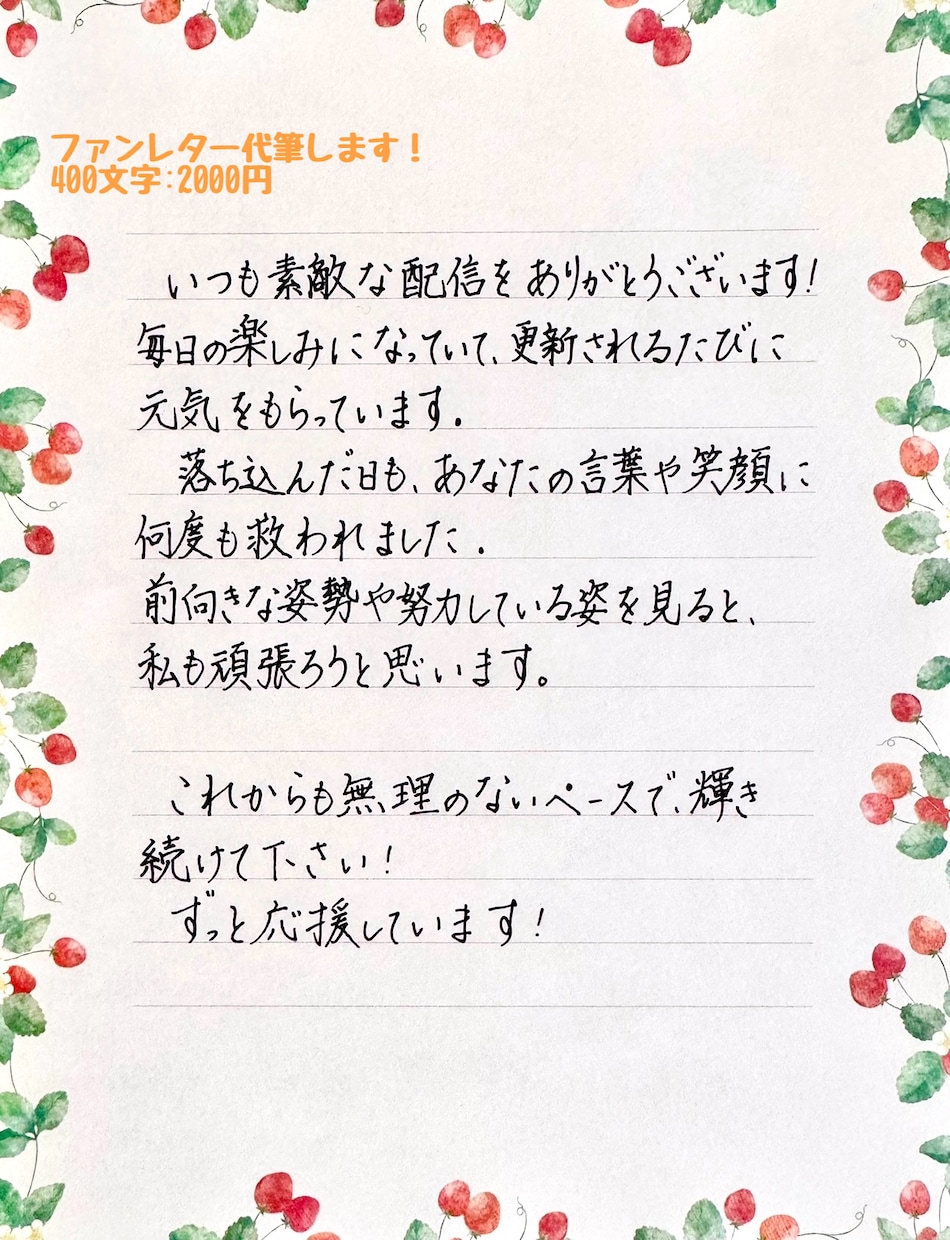 ファンレター代筆します！
400文字:2000円
いつも素敵な配信をありがとうございます!
毎日の楽しみになっていて、更新されるたびに
元気をもらっています.
落ち込んだ日も、あなたの言葉や笑顔に
何度も救われました.
前向きな姿勢や努力している姿を見ると、
私も頑張ろうと思います。
これからも無理のないペースで、輝き
続けて下さい!
ずっと応援しています!